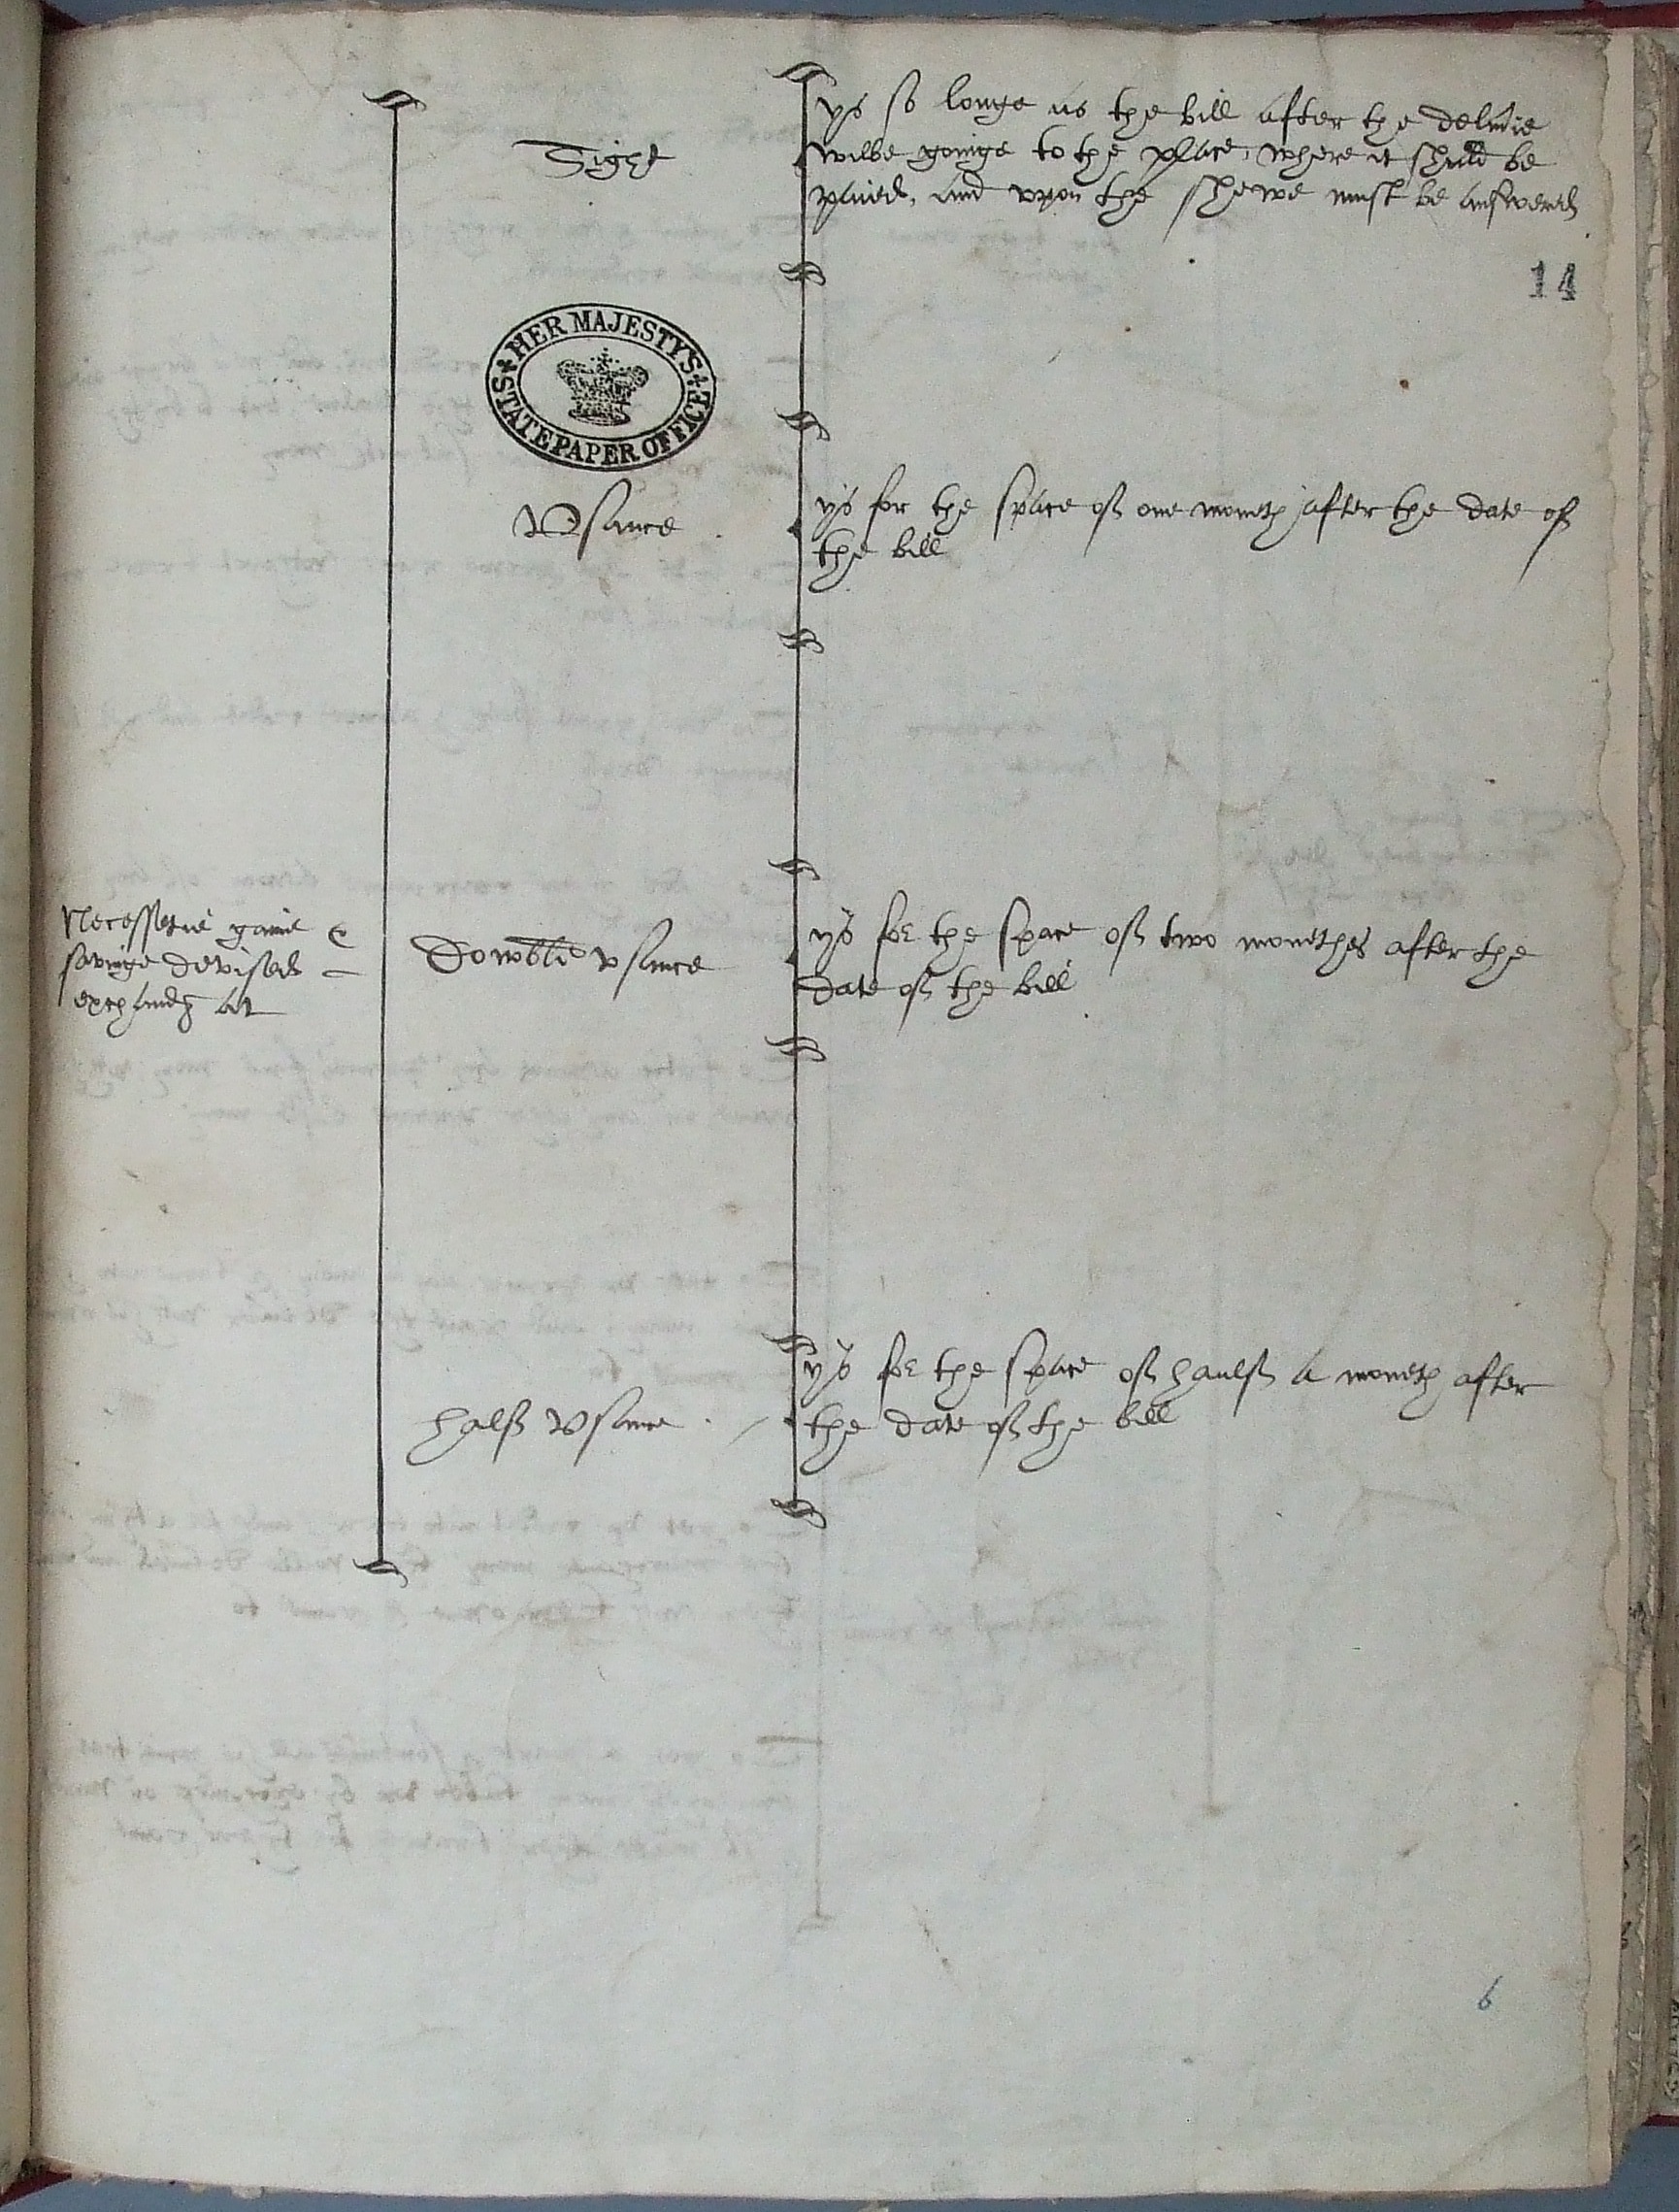 ys so longe as the bill after the deliũie
Sight
wilbe goinge to the place, where it shuld be
paied, and vpon the shewe must be answered
14
HER MAJESTY'S
STATE PAPER OFFICE
Vsance
ys for the space of one moneth after the date of
the bill
Necessetie gaine &
savinge devised
exchandg at
Dowble vsance
ys for the space of two monethes after the
date of the bill
ys for the space of haulf a moneth after
half Vsance
the date of the bill
6